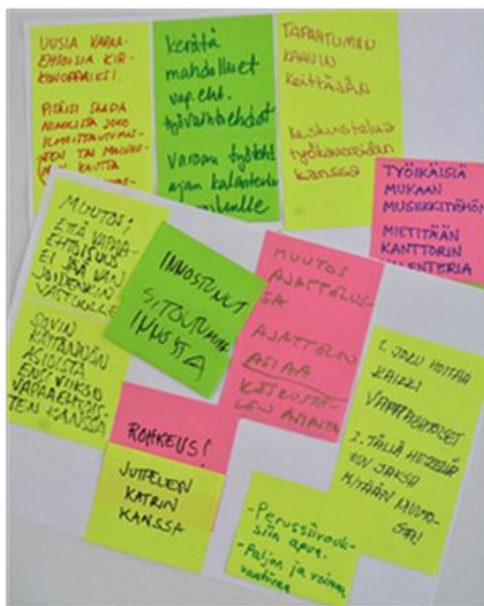 UUSIA VAPAA-
EHTOISIA KIR-
KONOPPAIKSI.
PITÄISI SAADA
JOKO
ILMOITTAUTUMI-
TAI
KAUTTA
kerätä
mahdolliset
vap.eht.
työvaihtoehdot
Varaan
ajan kalenteriin
TAPAATUMEN
KAHVIN
KEITTÄJÄN
Keskustelua
työkavereiden
kanssa
TYÖIKÄISIÄ
MUKAAN
MUSIIKKITYÖHÖN
MIETITÄÄN
KANTTORIN
MUUTOS!
ETTÄ VAPAA-
EHTOISUUS
EI JÄÄ VAN
JOIDENKIN
VASTUULLE
SOVIN
KÄYTÄNNÖN
ASIOISTA
VAPAAEHTOIS-
TEN KANSSA
INNOSTUNUT
SITOUTUMINEN
MUUTOS
AJATTELUS-
SA
AJATTELEN
ASIAA
KESKUSTE-
LEN ASIASTA
ROHKEUS!
JUTTELEN
KATRIN
KANSSA
1. JOKU HOITAA
KAIKKI
VAPAAEHTOISET
2. TÄLLÄ HETKELLÄ
EN JAKSA
MITÄÄN MUUTO-
-Perussiivouk-
siin apua.
-Paljon ja voimia